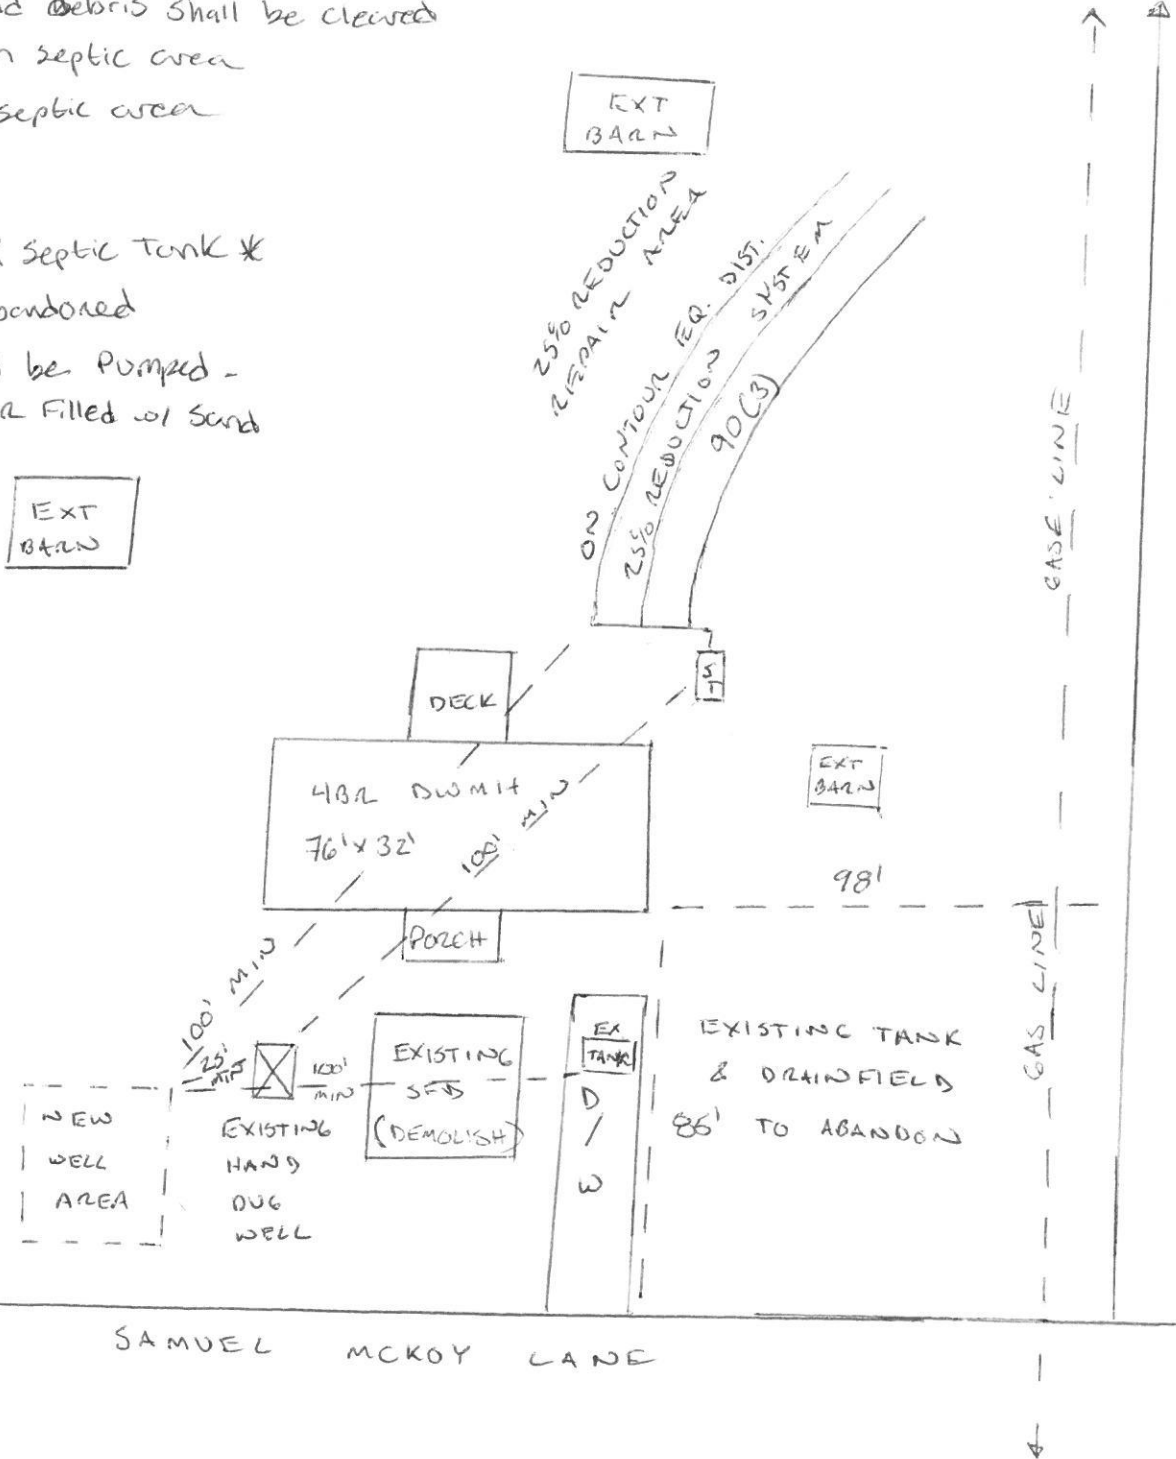 Debris Shall be cleared
septic area
septic area
EXT
BARN
Septic Tank *
be Pumped -
Filled w/ Sand
25% REDUCTION
REPAIR AREA
ON CONTOUR EQ. DIST.
25% REDUCTION SYSTEM
90(3)
EXT
BARN
GASE' LINE
ST
DECK
4BR DWMH
76'x32'
100' MIN
EXT
BARN
98'
PORCH
100' MIN
25'
MIN
100'
MIN
EXISTING
SFD
(DEMOLISH)
EX
TANK
D
/
W
EXISTING TANK
& DRAINFIELD
TO ABANDON
86'
GAS LINE
NEW
WELL
AREA
EXISTING
HAND
DUG
WELL
SAMUEL MCKOY LANE